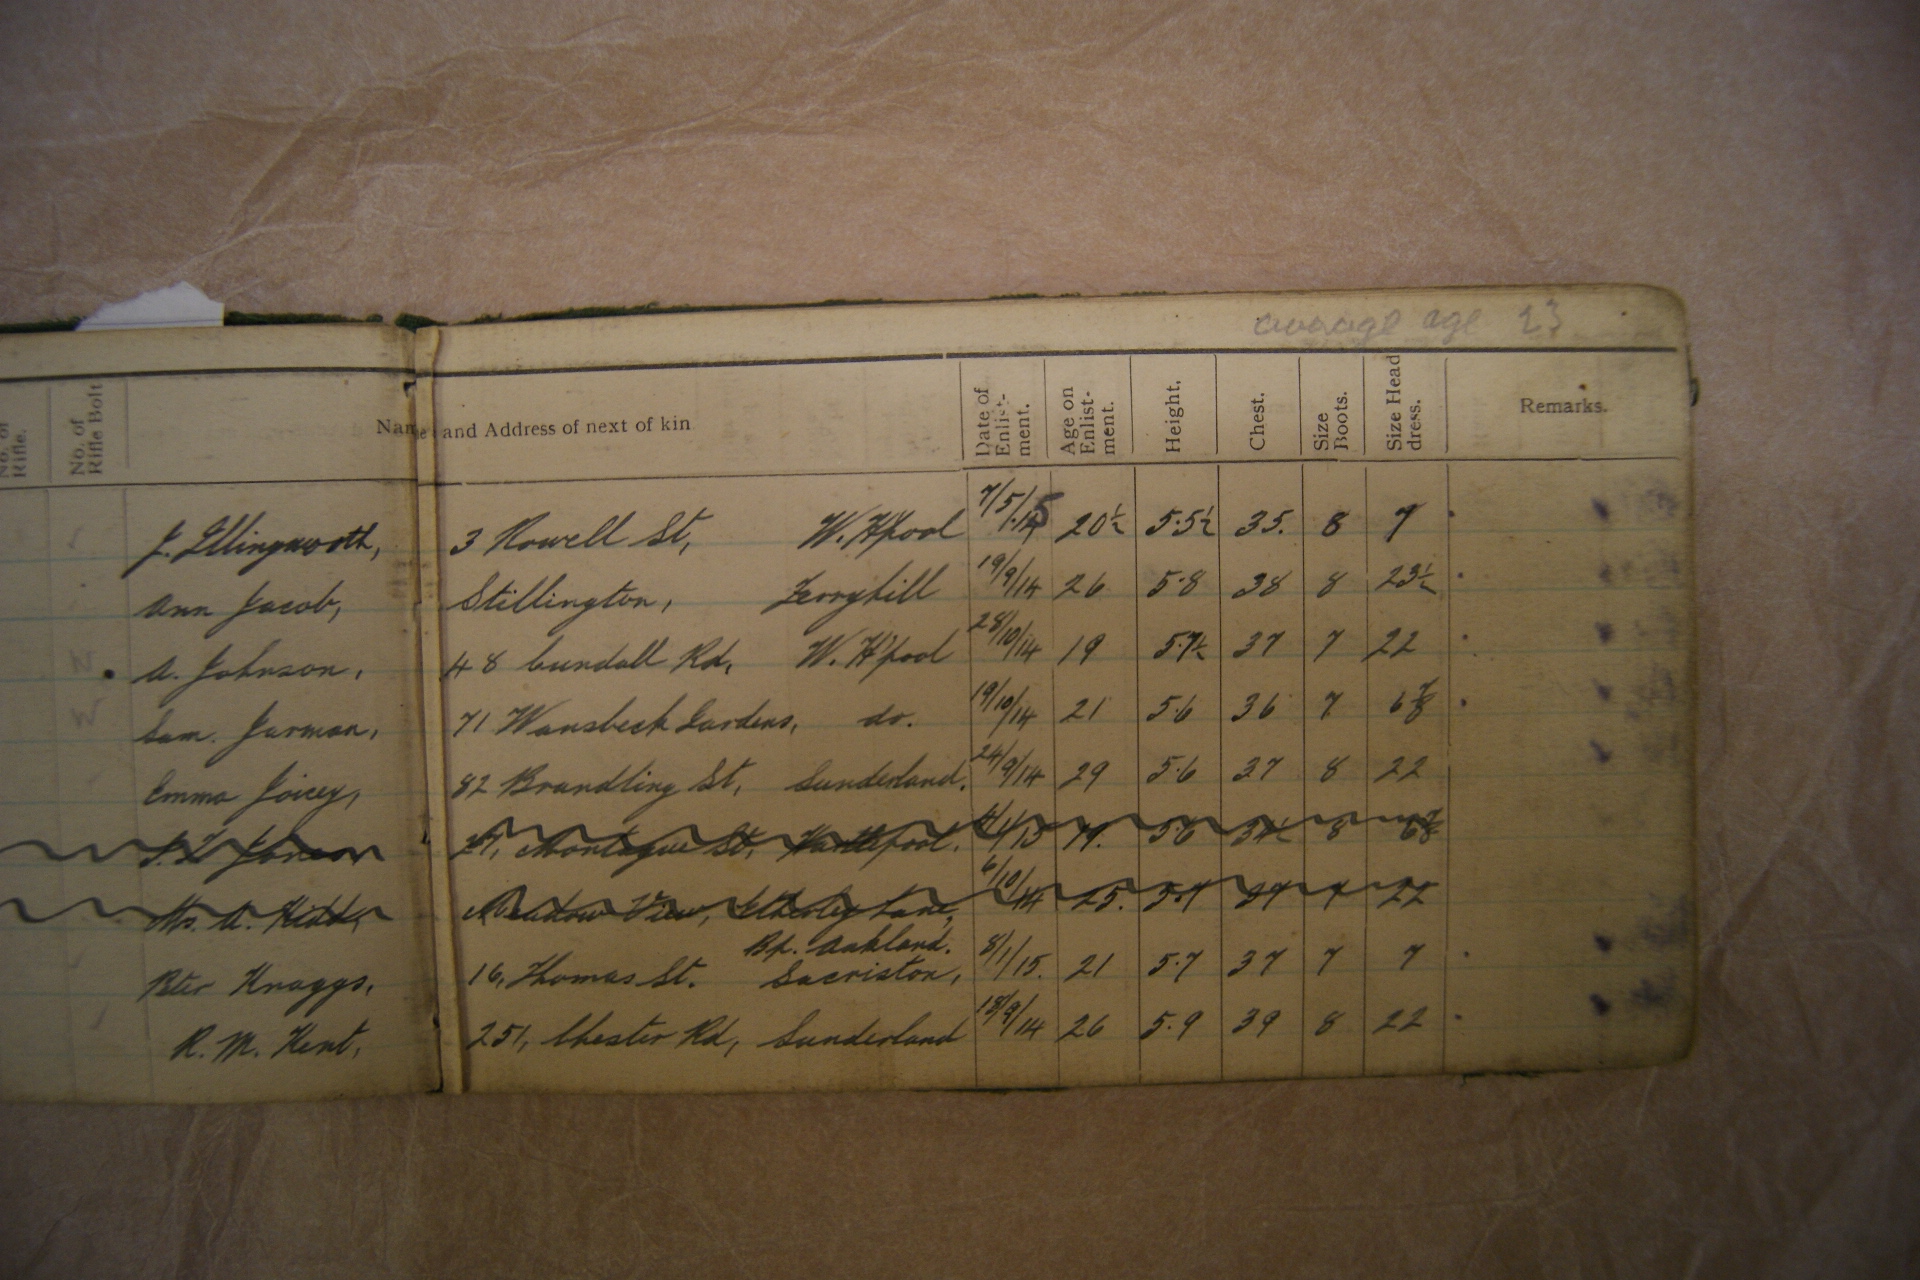 average age 23
No. of Rifle. No. of Rifle Bolt Name and Address of next of kin Date of Enlist-ment. Age on Enlist-ment. Height. Chest. Size Boots. Size Head dress. Remarks.
J. Illingworth, 3 Rowell St, W. H'pool 7/5/15 20½ 5.5½ 35. 8 7
Ann Jacob, Stillington, Ferryhill 19/9/14 26 5.8 38 8 23½
A. Johnson, 48 Cundall Rd, W. H'pool 28/10/14 19 5.7½ 37 7 22
Sam. Jarman, 71 Wansbeck Gardens, do. 19/10/14 21 5.6 36 7 6⅞
Emma Joicey, 82 Brandling St, Sunderland. 24/9/14 29 5.6 37 8 22
Montague St, Hartlepool. 19. 5.6 34½ 8 6⅞
Mrs. A. Kidd, Meadow View, Etherley Lane, 6/10/14 25. 22
Bp. Aukland.
Peter Knaggs, 16, Thomas St. Sacriston, 8/1/15. 21 5.7 37 7 7
R. M. Kent, 251, Chester Rd, Sunderland 18/9/14 26 5.9 39 8 22